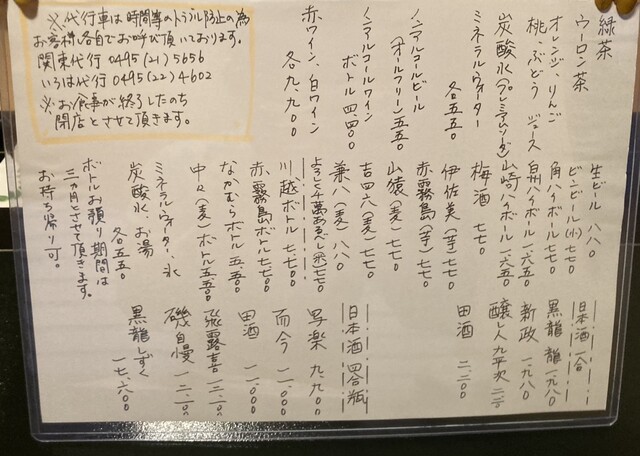 緑茶
ウーロン茶
オレンジ、りんご
桃、ぶどう ジュース
炭酸水(プレミアムソーダ)
ミネラルウォーター
各五五〇
ノンアルコールビール
(オールフリー)五五〇
ノンアルコールワイン
ボトル 四、四〇〇
赤ワイン、白ワイン
各九、九〇〇
※代行車は時間等のトラブル防止の為
お客様各自でお呼び頂いております。
関東代行 0495(21)5656
いろは代行 0495(22)4602
※お食事が終了したのち
閉店とさせて頂きます。
生ビール 八八〇
ビンビール(小)七七〇
角ハイボール 七七〇
白州ハイボール 一、六五〇
山崎ハイボール 一、六五〇
梅酒 七七〇
伊佐美(芋)七七〇
赤霧島(芋)七七〇
山猿(麦)七七〇
吉四六(麦)七七〇
兼八(麦)八八〇
川越ボトル 七、七〇〇
赤霧島ボトル 七、七〇〇
なかむらボトル 五、五〇〇
中々(麦)ボトル 五、五〇〇
ミネラルウォーター、氷
炭酸水、お湯
各五五〇
ボトルお預り期間は
三ヵ月とさせて頂きます。
お持ち帰り可。
日本酒 一合
黒龍 龍 一、九八〇
新政 一、九八〇
醸し人九平次 二、二〇〇
田酒 二、二〇〇
日本酒 四合瓶
写楽 九、九〇〇
而今 一一、〇〇〇
田酒 一一、〇〇〇
飛露喜 一三、二〇〇
磯自慢 一三、二〇〇
黒龍しずく
一七、六〇〇